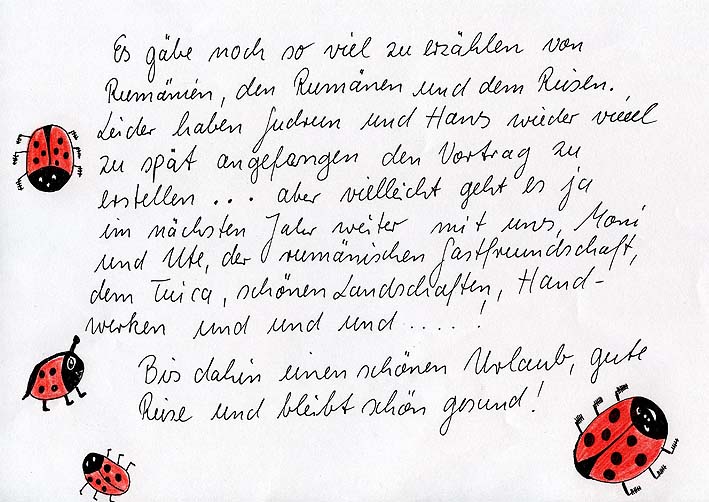 Es gäbe noch so viel zu erzählen von
Rumänien, den Rumänen und dem Reisen.
Leider haben Gudrun und Hans wieder vieeel
zu spät angefangen den Vortrag zu
erstellen ... aber vielleicht geht es ja
im nächsten Jahr weiter mit uns, Moni
und Ute, der rumänischen Gastfreundschaft,
dem Tuica, schönen Landschaften, Hand-
werken und und und .....!
Bis dahin einen schönen Urlaub, gute
Reise und bleibt schön gesund!